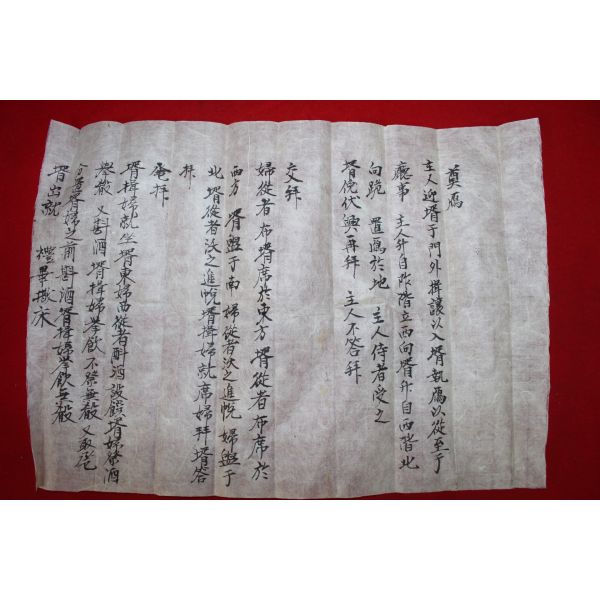 奠鴈
主人迎壻于門外揖讓以入壻執鴈以從至于
廳事 主人升自阼階立西向壻升自西階北
向跪 置鴈於地 主人侍者受之
壻俛伏興再拜 主人不答拜
交拜
婦從者布壻席於東方 壻從者布席於
西方 壻盥于南 婦從者沃之進帨 婦盥于
北 壻從者沃之進帨 壻揖婦就席婦拜壻答
拜
壻揖婦就坐壻東婦西從者斟酒設饌壻婦祭酒
擧殽 又斟酒壻揖婦擧飮不祭無殽 又取卺
壻婦之前斟酒壻揖婦擧飮無殽
壻出就 禮畢撤床